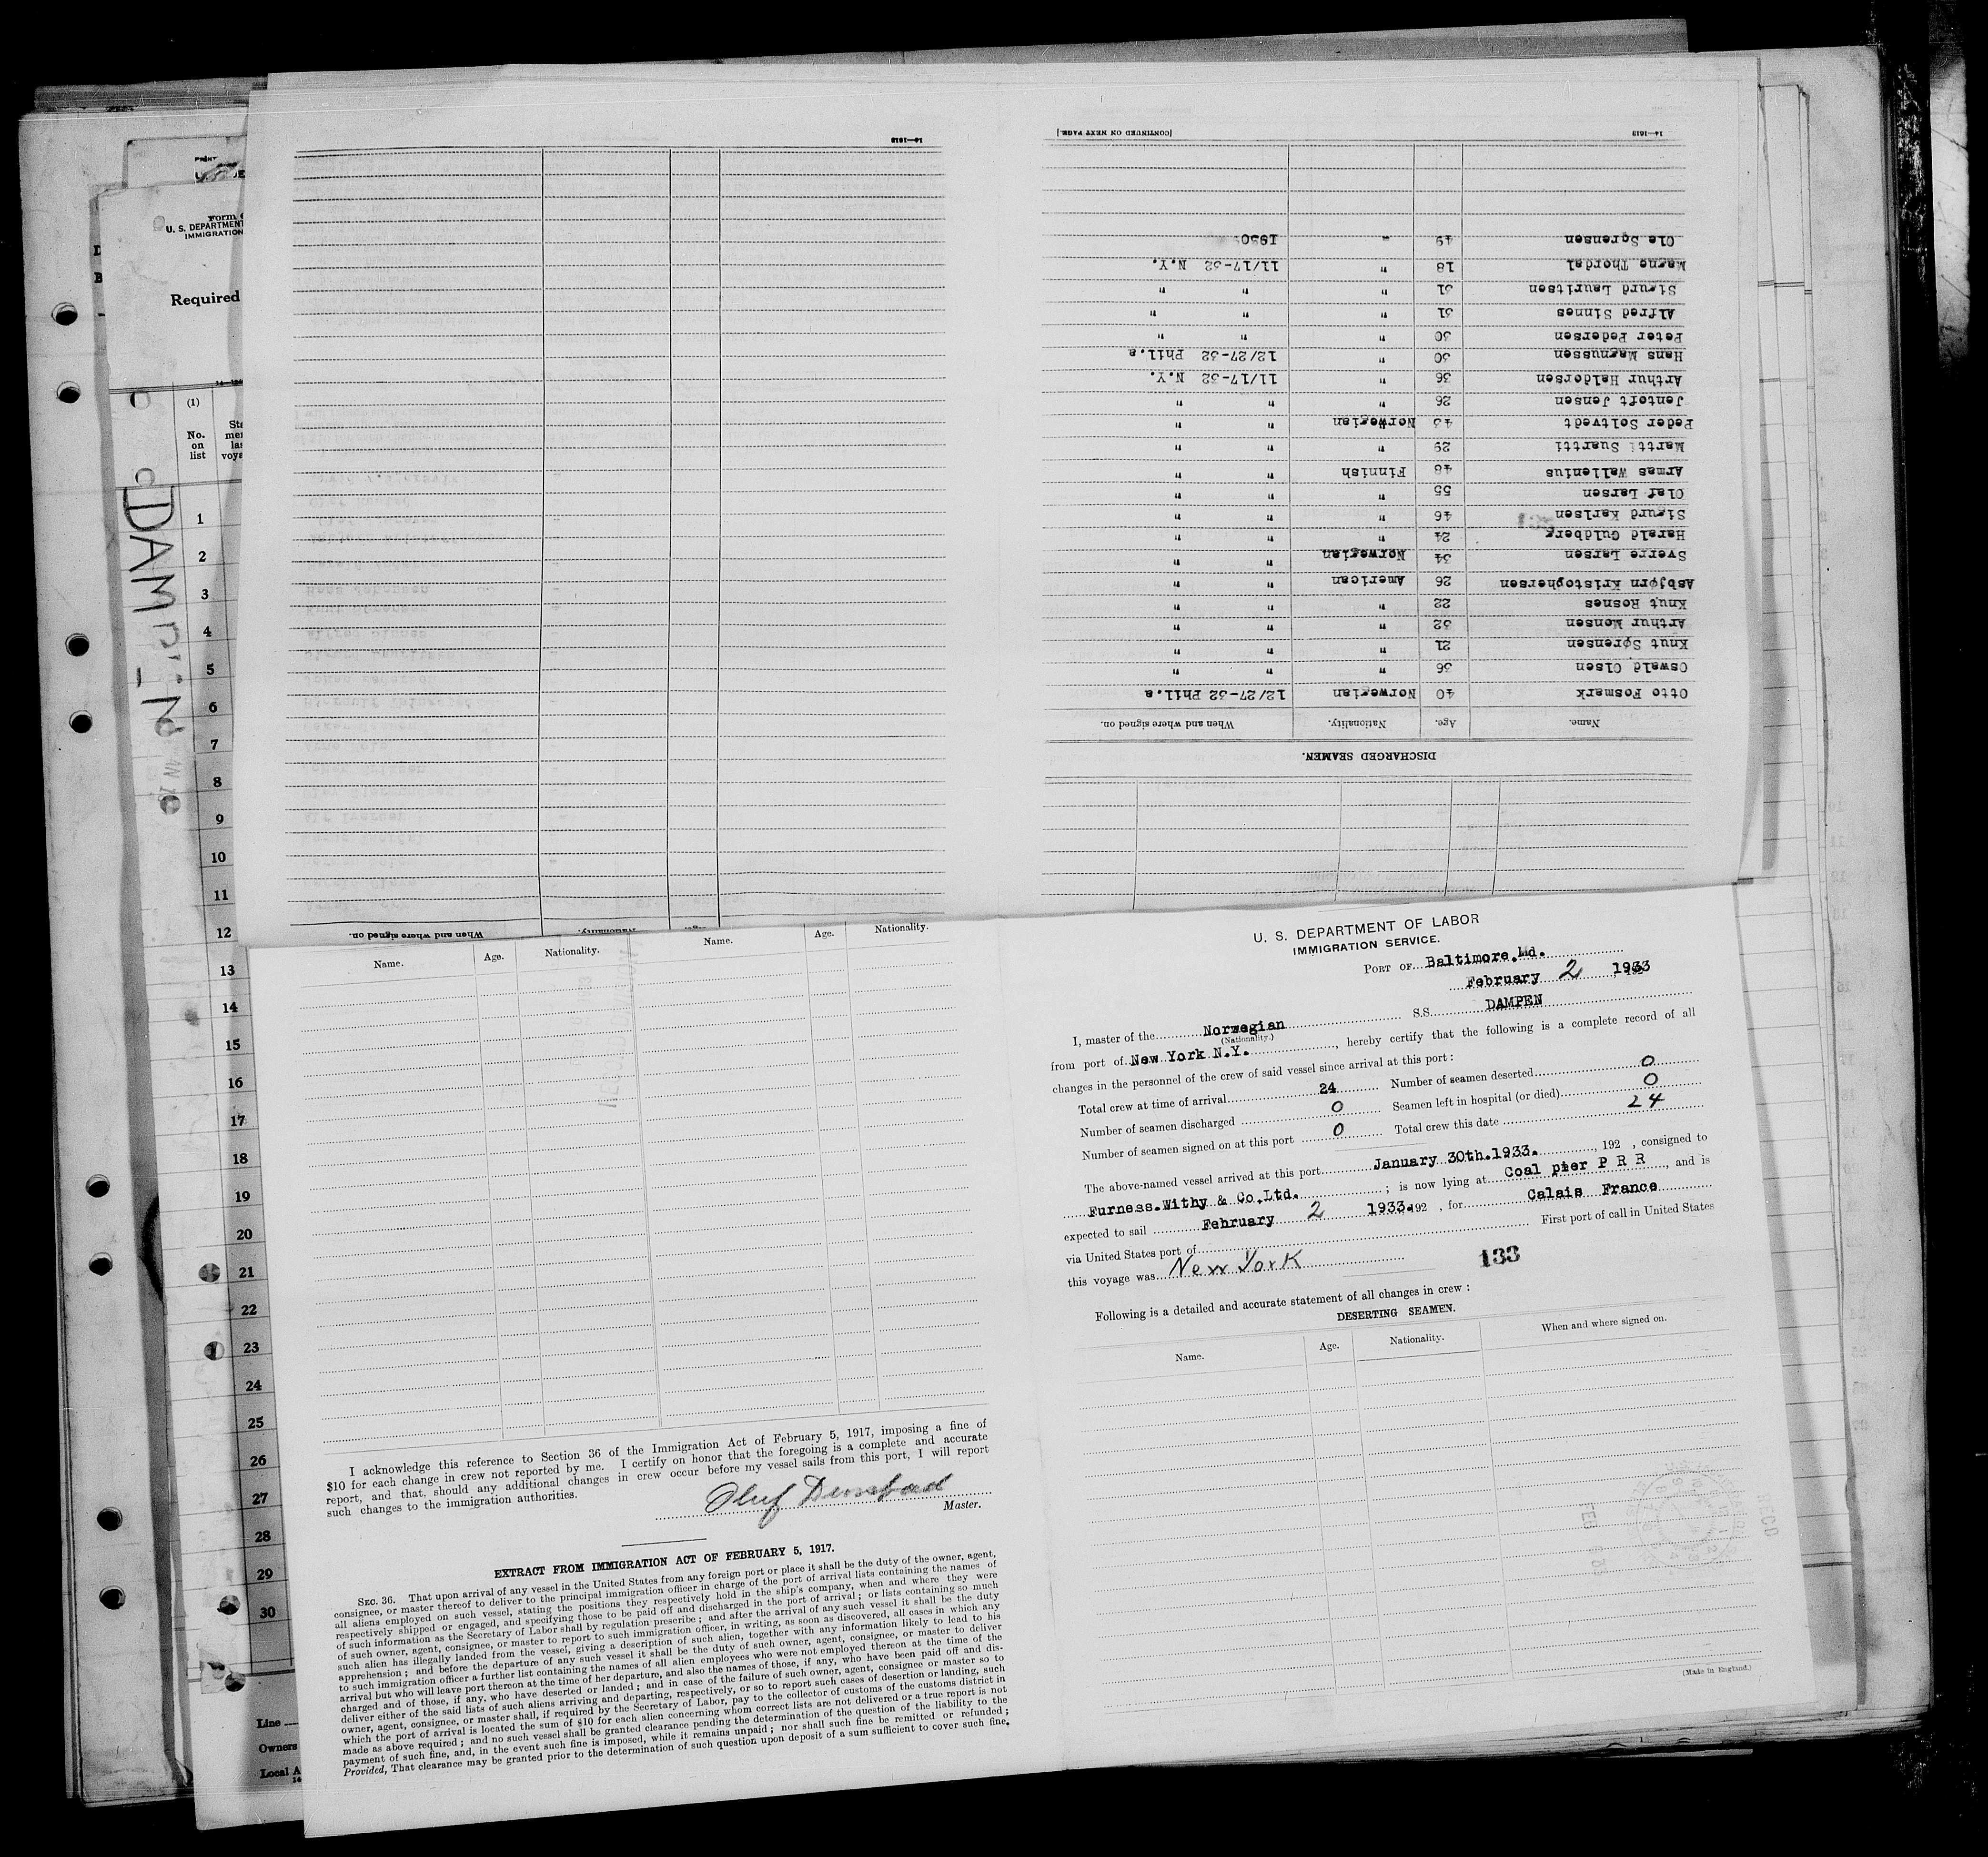 U. S. DEPARTMENT OF LABOR
IMMIGRATION SERVICE.
PORT OF Baltimore.Md.
February 2 1933
I, master of the Norwegian S.S. DAMPEN
(Nationality.)
from port of New York N.Y. , hereby certify that the following is a complete record of all
changes in the personnel of the crew of said vessel since arrival at this port:
Total crew at time of arrival 24 Number of seamen deserted 0
Number of seamen discharged 0 Seamen left in hospital (or died) 0
Number of seamen signed on at this port 0 Total crew this date 24
The above-named vessel arrived at this port January 30th.1933. , 192 , consigned to
Furness.Withy & Co.Ltd. ; is now lying at Coal pier P R R , and is
expected to sail February 2 1933. 192 , for Calais France
via United States port of First port of call in United States
this voyage was New York
133
Following is a detailed and accurate statement of all changes in crew :
DESERTING SEAMEN.
Name. Age. Nationality. When and where signed on.
(Made in England.)
REC'D
FEB
DISCHARGED SEAMEN.
Name. Age. Nationality. When and where signed on.
Otto Fosmark 40 Norwegian 12/27-32 Phil.a
Oswald Olsen 36 " " "
Knut Sørensen 21 " " "
Arthur Monsen 32 " " "
Knut Rosnes 22 " " "
Asbjørn Kristophersen 26 American " "
Sverre Larsen 34 Norwegian " "
Harald Guldberg 24 " " "
Sigurd Karlsen 46 " " "
Olaf Larsen 55 " " "
Armas Wallenius 48 Finnish " "
Martti Suartti 29 " " "
Peder Soltvedt 43 Norwegian " "
Jentoft Jensen 26 " " "
Arthur Haldorsen 36 " 11/17-32 N.Y.
Hans Magnussen 30 " 12/27-32 Phil.a
Peter Pedersen 30 " " "
Alfred Sinnes 31 " " "
Sigurd Lauritsen 31 " " "
Magne Thordal 18 " 11/17-32 N.Y.
Ole Sørensen 49 " 1930
14—1613 [CONTINUED ON NEXT PAGE.]
When and where signed on. Nationality.
14—1613
Name. Age. Nationality. Name. Age. Nationality.
I acknowledge this reference to Section 36 of the Immigration Act of February 5, 1917, imposing a fine of
$10 for each change in crew not reported by me. I certify on honor that the foregoing is a complete and accurate
report, and that, should any additional changes in crew occur before my vessel sails from this port, I will report
such changes to the immigration authorities.
Master.
EXTRACT FROM IMMIGRATION ACT OF FEBRUARY 5, 1917.
SEC. 36. That upon arrival of any vessel in the United States from any foreign port or place it shall be the duty of the owner, agent,
consignee, or master thereof to deliver to the principal immigration officer in charge of the port of arrival lists containing the names of
all aliens employed on such vessel, stating the positions they respectively hold in the ship's company, when and where they were
respectively shipped or engaged, and specifying those to be paid off and discharged in the port of arrival ; or lists containing so much
of such information as the Secretary of Labor shall by regulation prescribe ; and after the arrival of any such vessel it shall be the duty
of such owner, agent, consignee, or master to report to such immigration officer, in writing, as soon as discovered, all cases in which any
such alien has illegally landed from the vessel, giving a description of such alien, together with any information likely to lead to his
apprehension ; and before the departure of any such vessel it shall be the duty of such owner, agent, consignee, or master to deliver
to such immigration officer a further list containing the names of all alien employees who were not employed thereon at the time of the
arrival but who will leave port thereon at the time of her departure, and also the names of those, if any, who have been paid off and dis-
charged and of those, if any, who have deserted or landed ; and in case of the failure of such owner, agent, consignee or master so to
deliver either of the said lists of such aliens arriving and departing, respectively, or so to report such cases of desertion or landing, such
owner, agent, consignee, or master shall, if required by the Secretary of Labor, pay to the collector of customs of the customs district in
which the port of arrival is located the sum of $10 for each alien concerning whom correct lists are not delivered or a true report is not
made as above required ; and no such vessel shall be granted clearance pending the determination of the question of the liability to the
payment of such fine, and, in the event such fine is imposed, while it remains unpaid ; nor shall such fine be remitted or refunded ;
Provided, That clearance may be granted prior to the determination of such question upon deposit of a sum sufficient to cover such fine.
U. S. DEPARTMENT
IMMIGRATION
Required
(1)
No.
on
list
1
2
3
4
5
6
7
8
9
10
11
12
13
14
15
16
17
18
19
20
21
22
23
24
25
26
27
28
29
30
Line
Owners
Local A